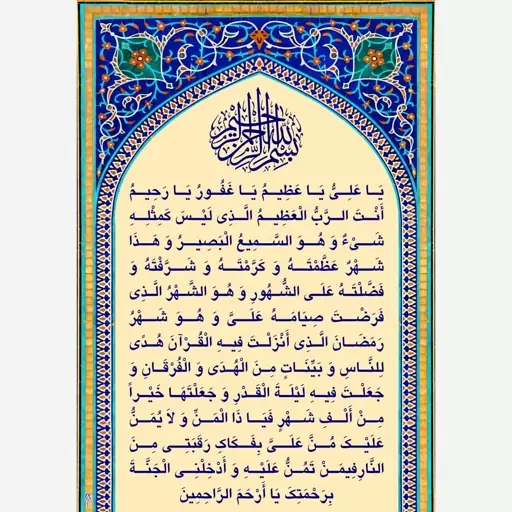 بسم الله الرحمن الرحیم
یَا عَلِیُّ یَا عَظِیمُ یَا غَفُورُ یَا رَحِیمُ
أَنْتَ الرَّبُّ الْعَظِیمُ الَّذِی لَیْسَ کَمِثْلِهِ
شَیْءٌ وَ هُوَ السَّمِیعُ الْبَصِیرُ وَ هَذَا
شَهْرٌ عَظَّمْتَهُ وَ کَرَّمْتَهُ وَ شَرَّفْتَهُ وَ
فَضَّلْتَهُ عَلَى الشُّهُورِ وَ هُوَ الشَّهْرُ الَّذِی
فَرَضْتَ صِیَامَهُ عَلَیَّ وَ هُوَ شَهْرُ
رَمَضَانَ الَّذِی أَنْزَلْتَ فِیهِ الْقُرْآنَ هُدًى
لِلنَّاسِ وَ بَیِّنَاتٍ مِنَ الْهُدَى وَ الْفُرْقَانِ وَ
جَعَلْتَ فِیهِ لَیْلَةَ الْقَدْرِ وَ جَعَلْتَهَا خَیْراً
مِنْ أَلْفِ شَهْرٍ فَیَا ذَا الْمَنِّ وَ لاَ یُمَنُّ
عَلَیْکَ مُنَّ عَلَیَّ بِفَکَاکِ رَقَبَتِی مِنَ
النَّارِ فِیمَنْ تَمُنُّ عَلَیْهِ وَ أَدْخِلْنِی الْجَنَّةَ
بِرَحْمَتِکَ یَا أَرْحَمَ الرَّاحِمِینَ